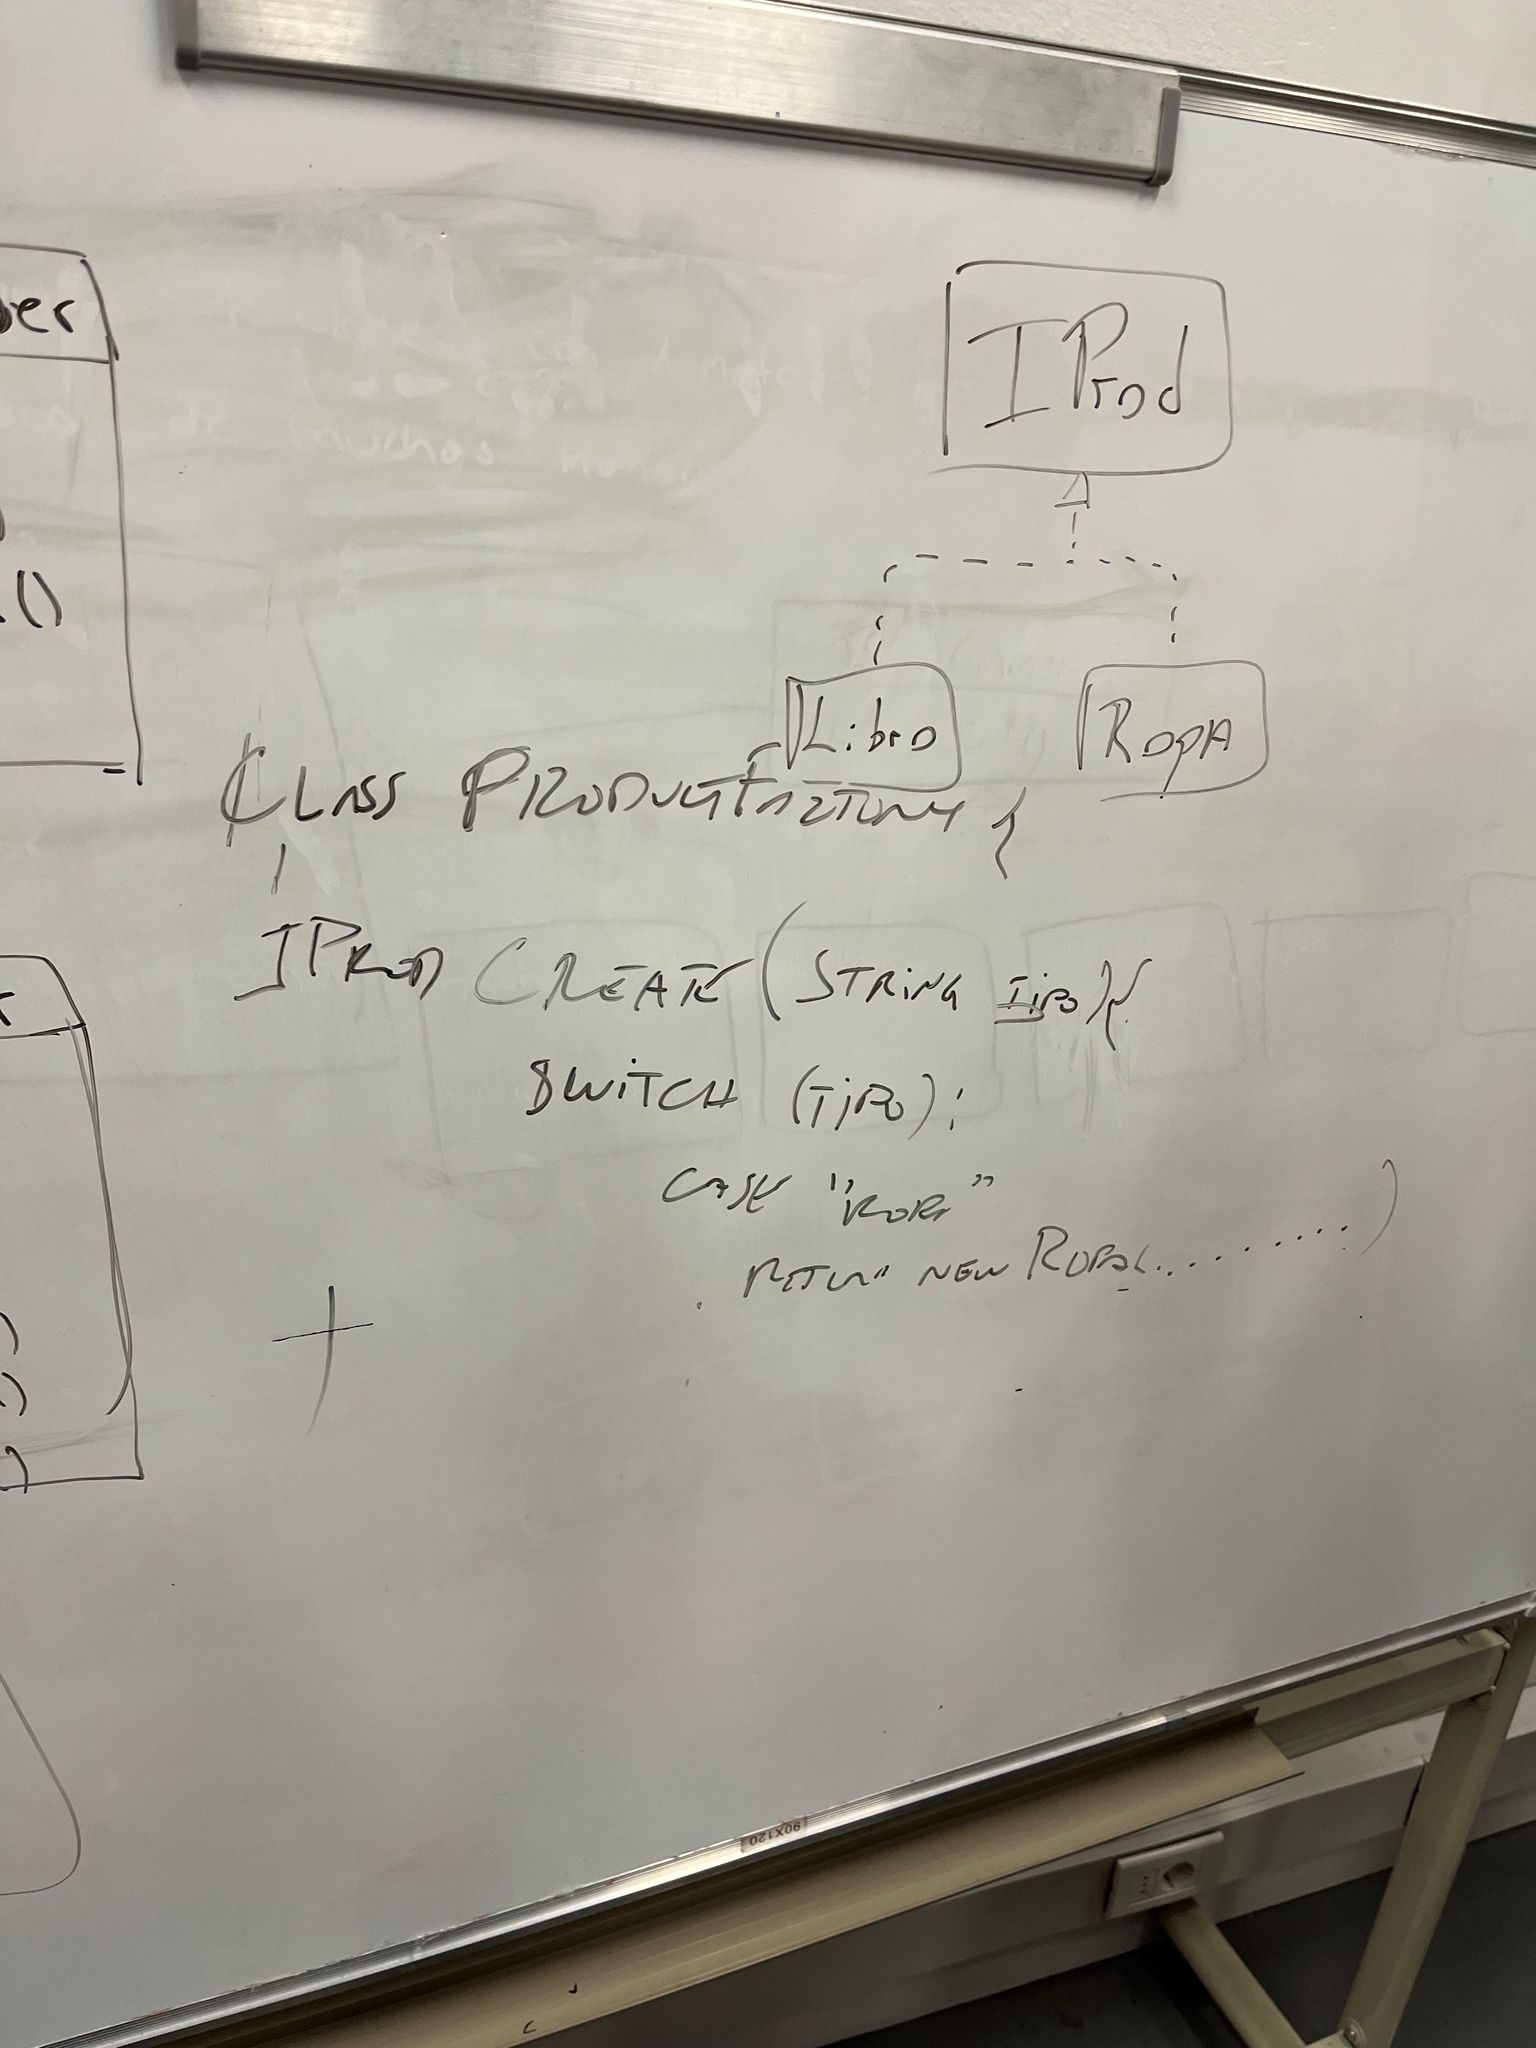 ber
IProd
.()
Libro
Ropa
CLASS PRODUCTFACTORY {
IPROD CREATE (STRING TIPO){
SWITCH (TIPO):
CASE "ROPA"
RETURN NEW ROPA(..........)
90X120